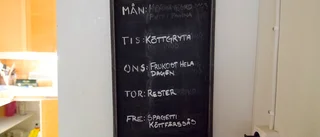 MÅN:
TIS: KÖTTGRYTA
ONS: FRUKOST HELA
DAGEN
TOR: RESTER
FRE: SPAGETTI
KÖTTFÄRSSÅS